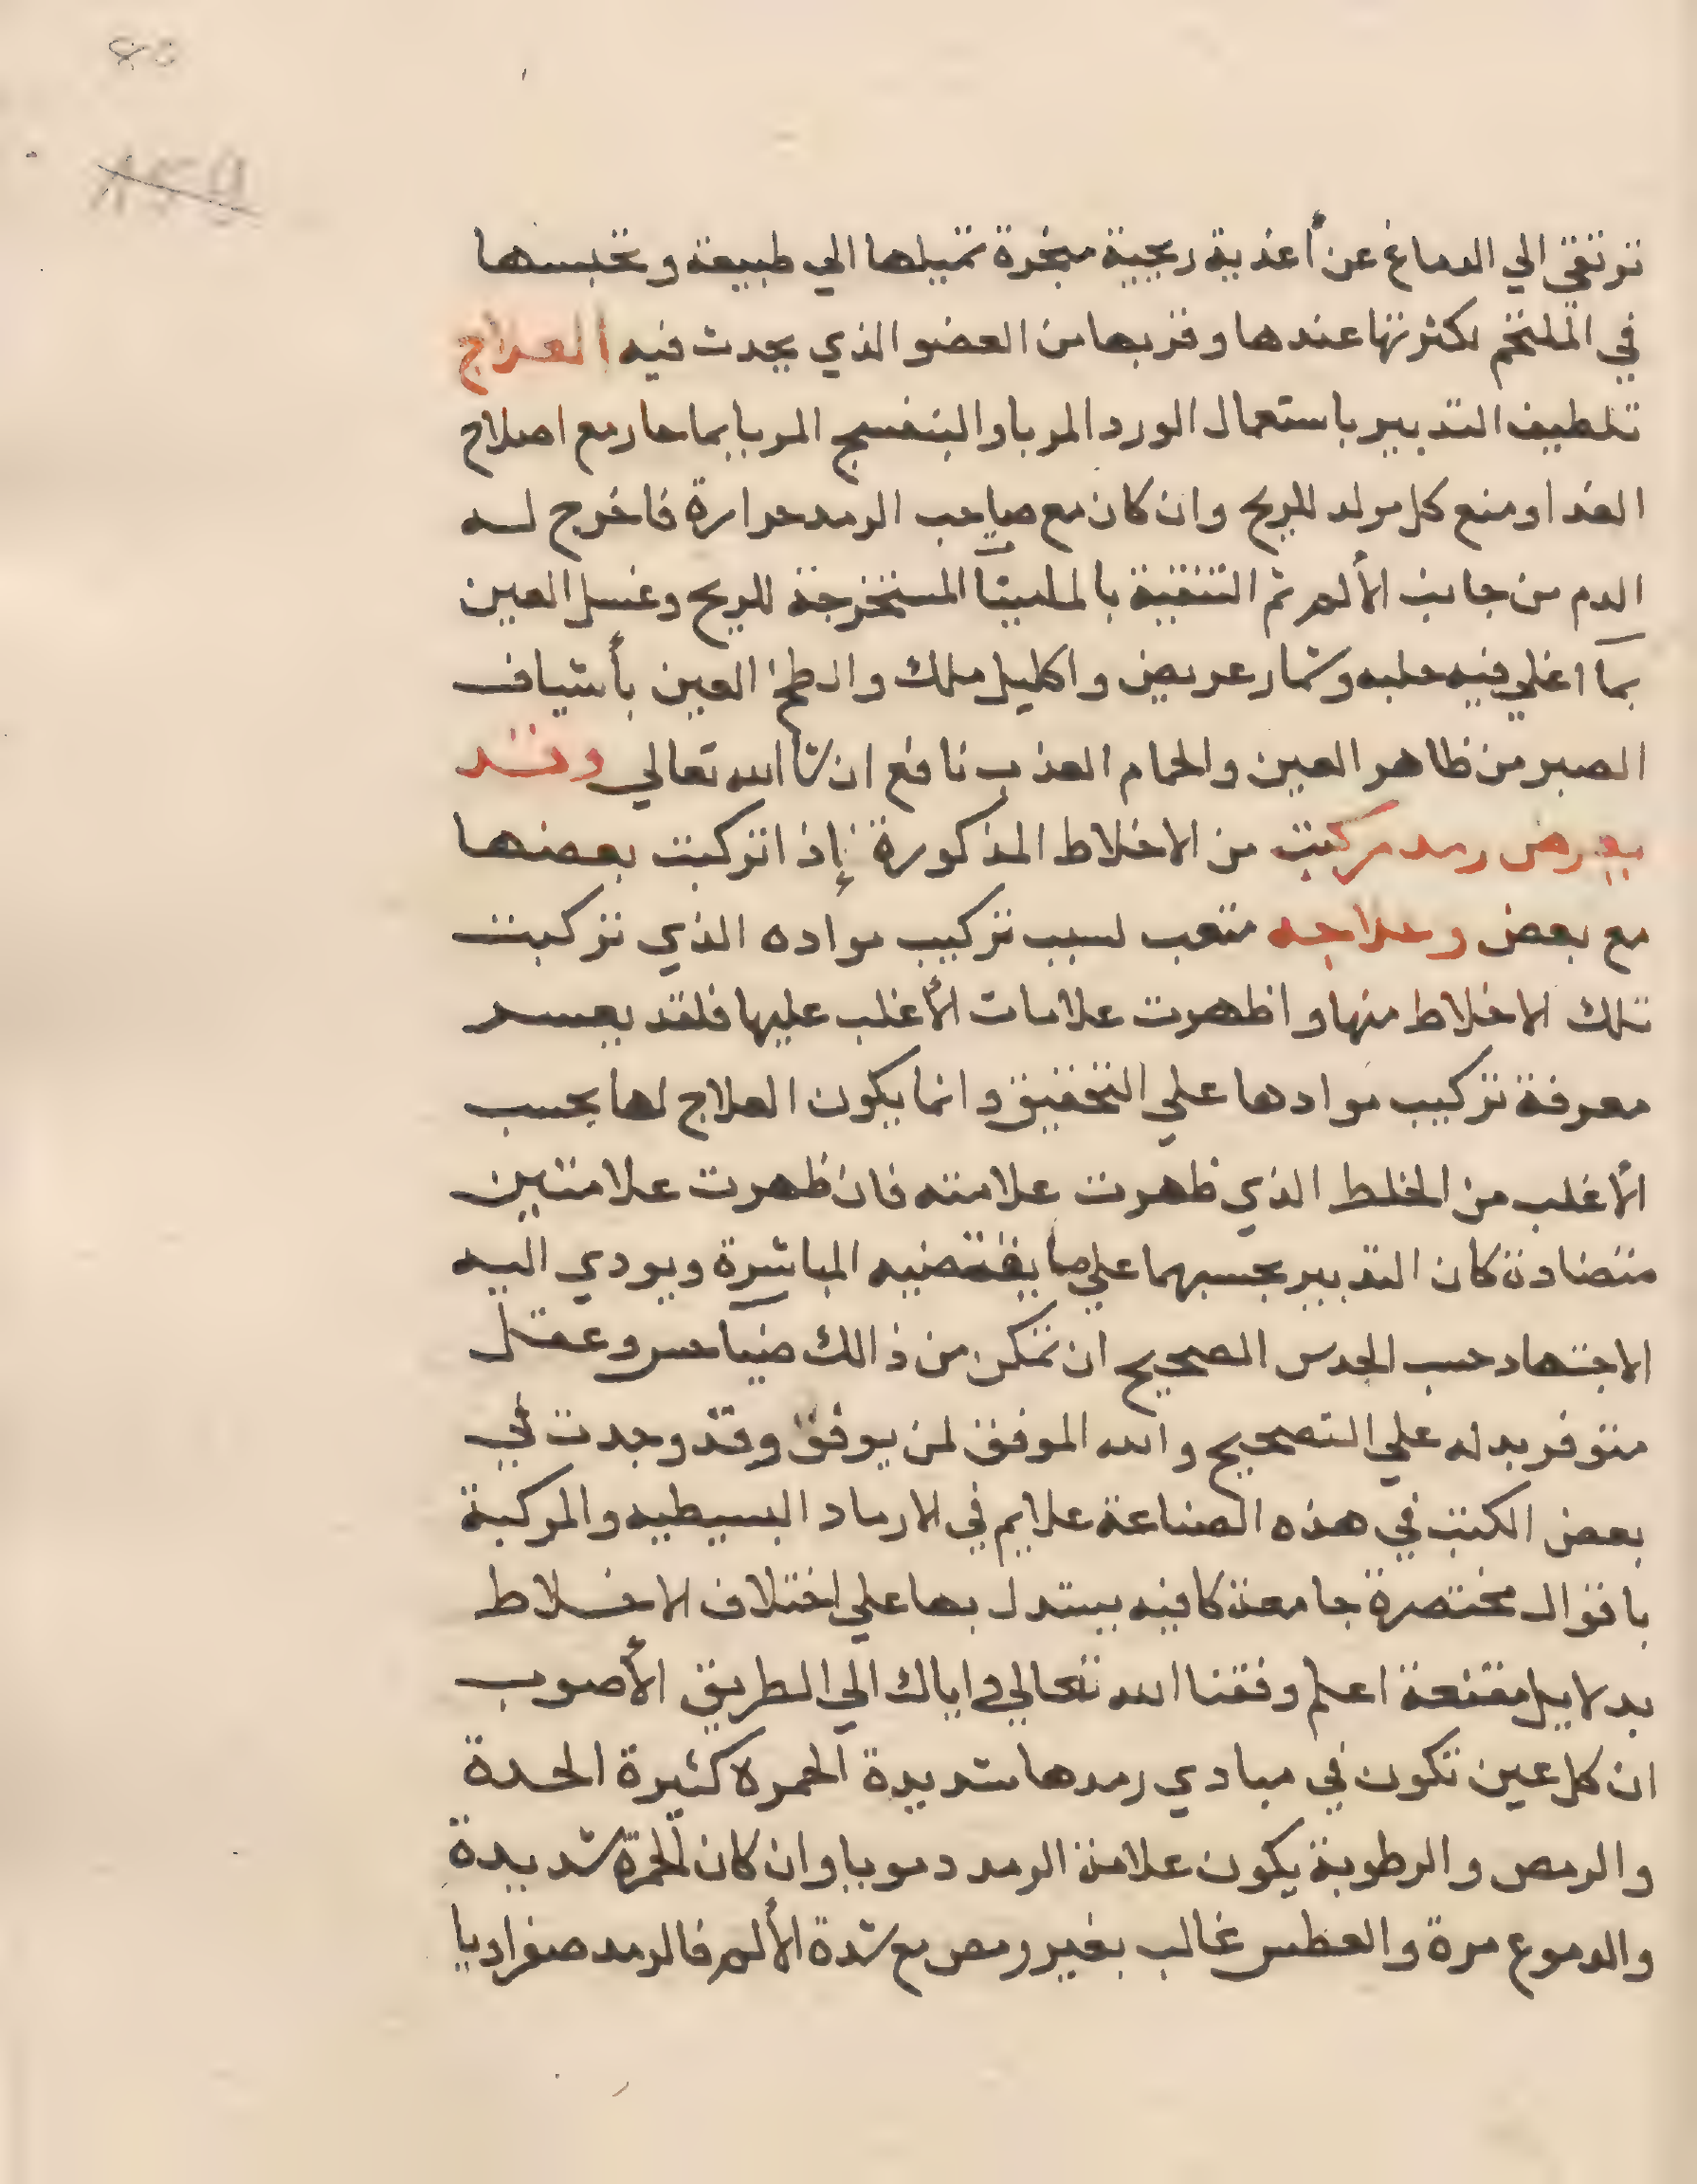 ترتقي الي الدماغ عن أغذية ريحية مبخرة تميلها الي طبيعة وتحبسها
في الملتحم لكثرتها عندها وقربها من العضو الذي يحدث فيه العلاج
تلطيف التدبير باستعمال الورد المربا والبنفسج المربا بما حار مع اصلاح
الغذا ومنع كل مولد للريح وان كان مع صاحب الرمد حرارة فاخرج له
الدم من جانب الألم ثم التنقية بالملينا المستخرجة للريح وغسل العين
بما اغلي فيه حلبه وشمار عريض واكليل ملك والطخ العين بأشياف
الصبر من ظاهر العين والحمام العذب نافع ان شا الله تعالي وقد
يعرض رمد مركب من الاخلاط المذكورة إذا تركبت بعضها
مع بعض وعلاجه متعب لسبب تركيب مواده الذي تركبت
تلك الاخلاط منها واظهرت علامات الأغلب عليها فلقد يعسر
معرفة تركيب موادها علي التحقيق وانما يكون العلاج لها بحسب
الأغلب من الخلط الذي ظهرت علامته فان ظهرت علامتين
متضادة كان التدبير بحسبهما علي ما يقتضيه المباشرة ويودي اليه
الاجتهاد حسب الحدس الصحيح ان تمكن من ذالك ضياحس وعقل
متوفر يدله علي التصحيح والله الموفق لمن يوفق وقد وجدت في
بعض الكتب في هذه الصناعة علايم في الارماد البسيطيه والمركبة
باقوال مختصرة جامعة كافيه يستدل بها علي اختلاف الاخلاط
بدلايل مقنعة اعلم وفقنا الله تعالي واياك الي الطريق الأصوب
ان كل عين تكون في مبادي رمدها شديدة الحمره كثيرة الحدة
والرمص والرطوبة يكون علامة الرمد دمويا وان كان الحمرة شديدة
والدموع مرة والعطس غالب بغير رمص مع شدة الألم فالرمد صفراديا